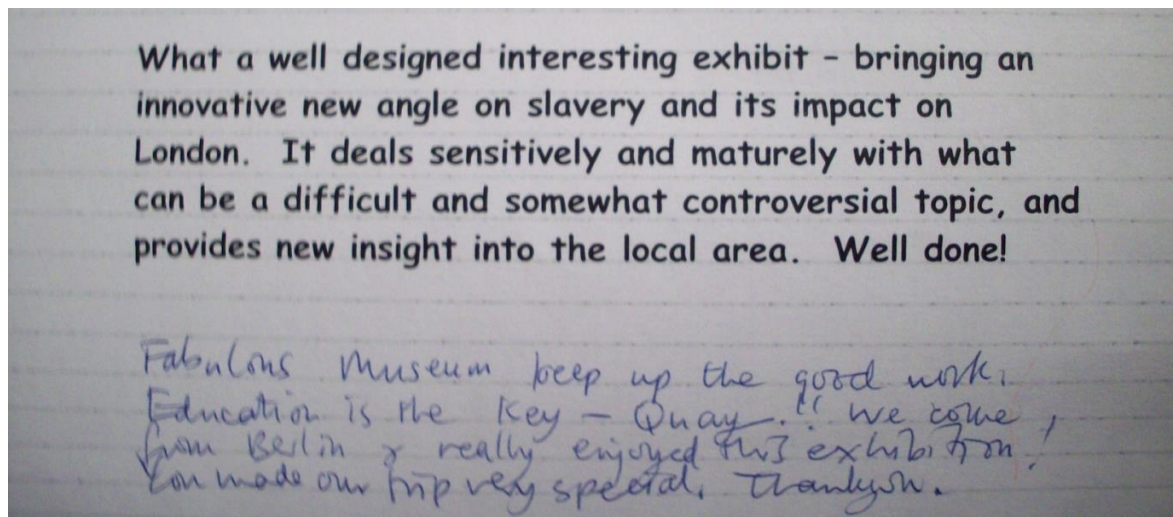 What a well designed interesting exhibit - bringing an
innovative new angle on slavery and its impact on
London. It deals sensitively and maturely with what
can be a difficult and somewhat controversial topic, and
provides new insight into the local area. Well done!
Fabulous Museum keep up the good work.
Education is the Key - Quay.!! We come,
from Berlin & really enjoyed this exhibition!
You made our trip very special. Thankyou.